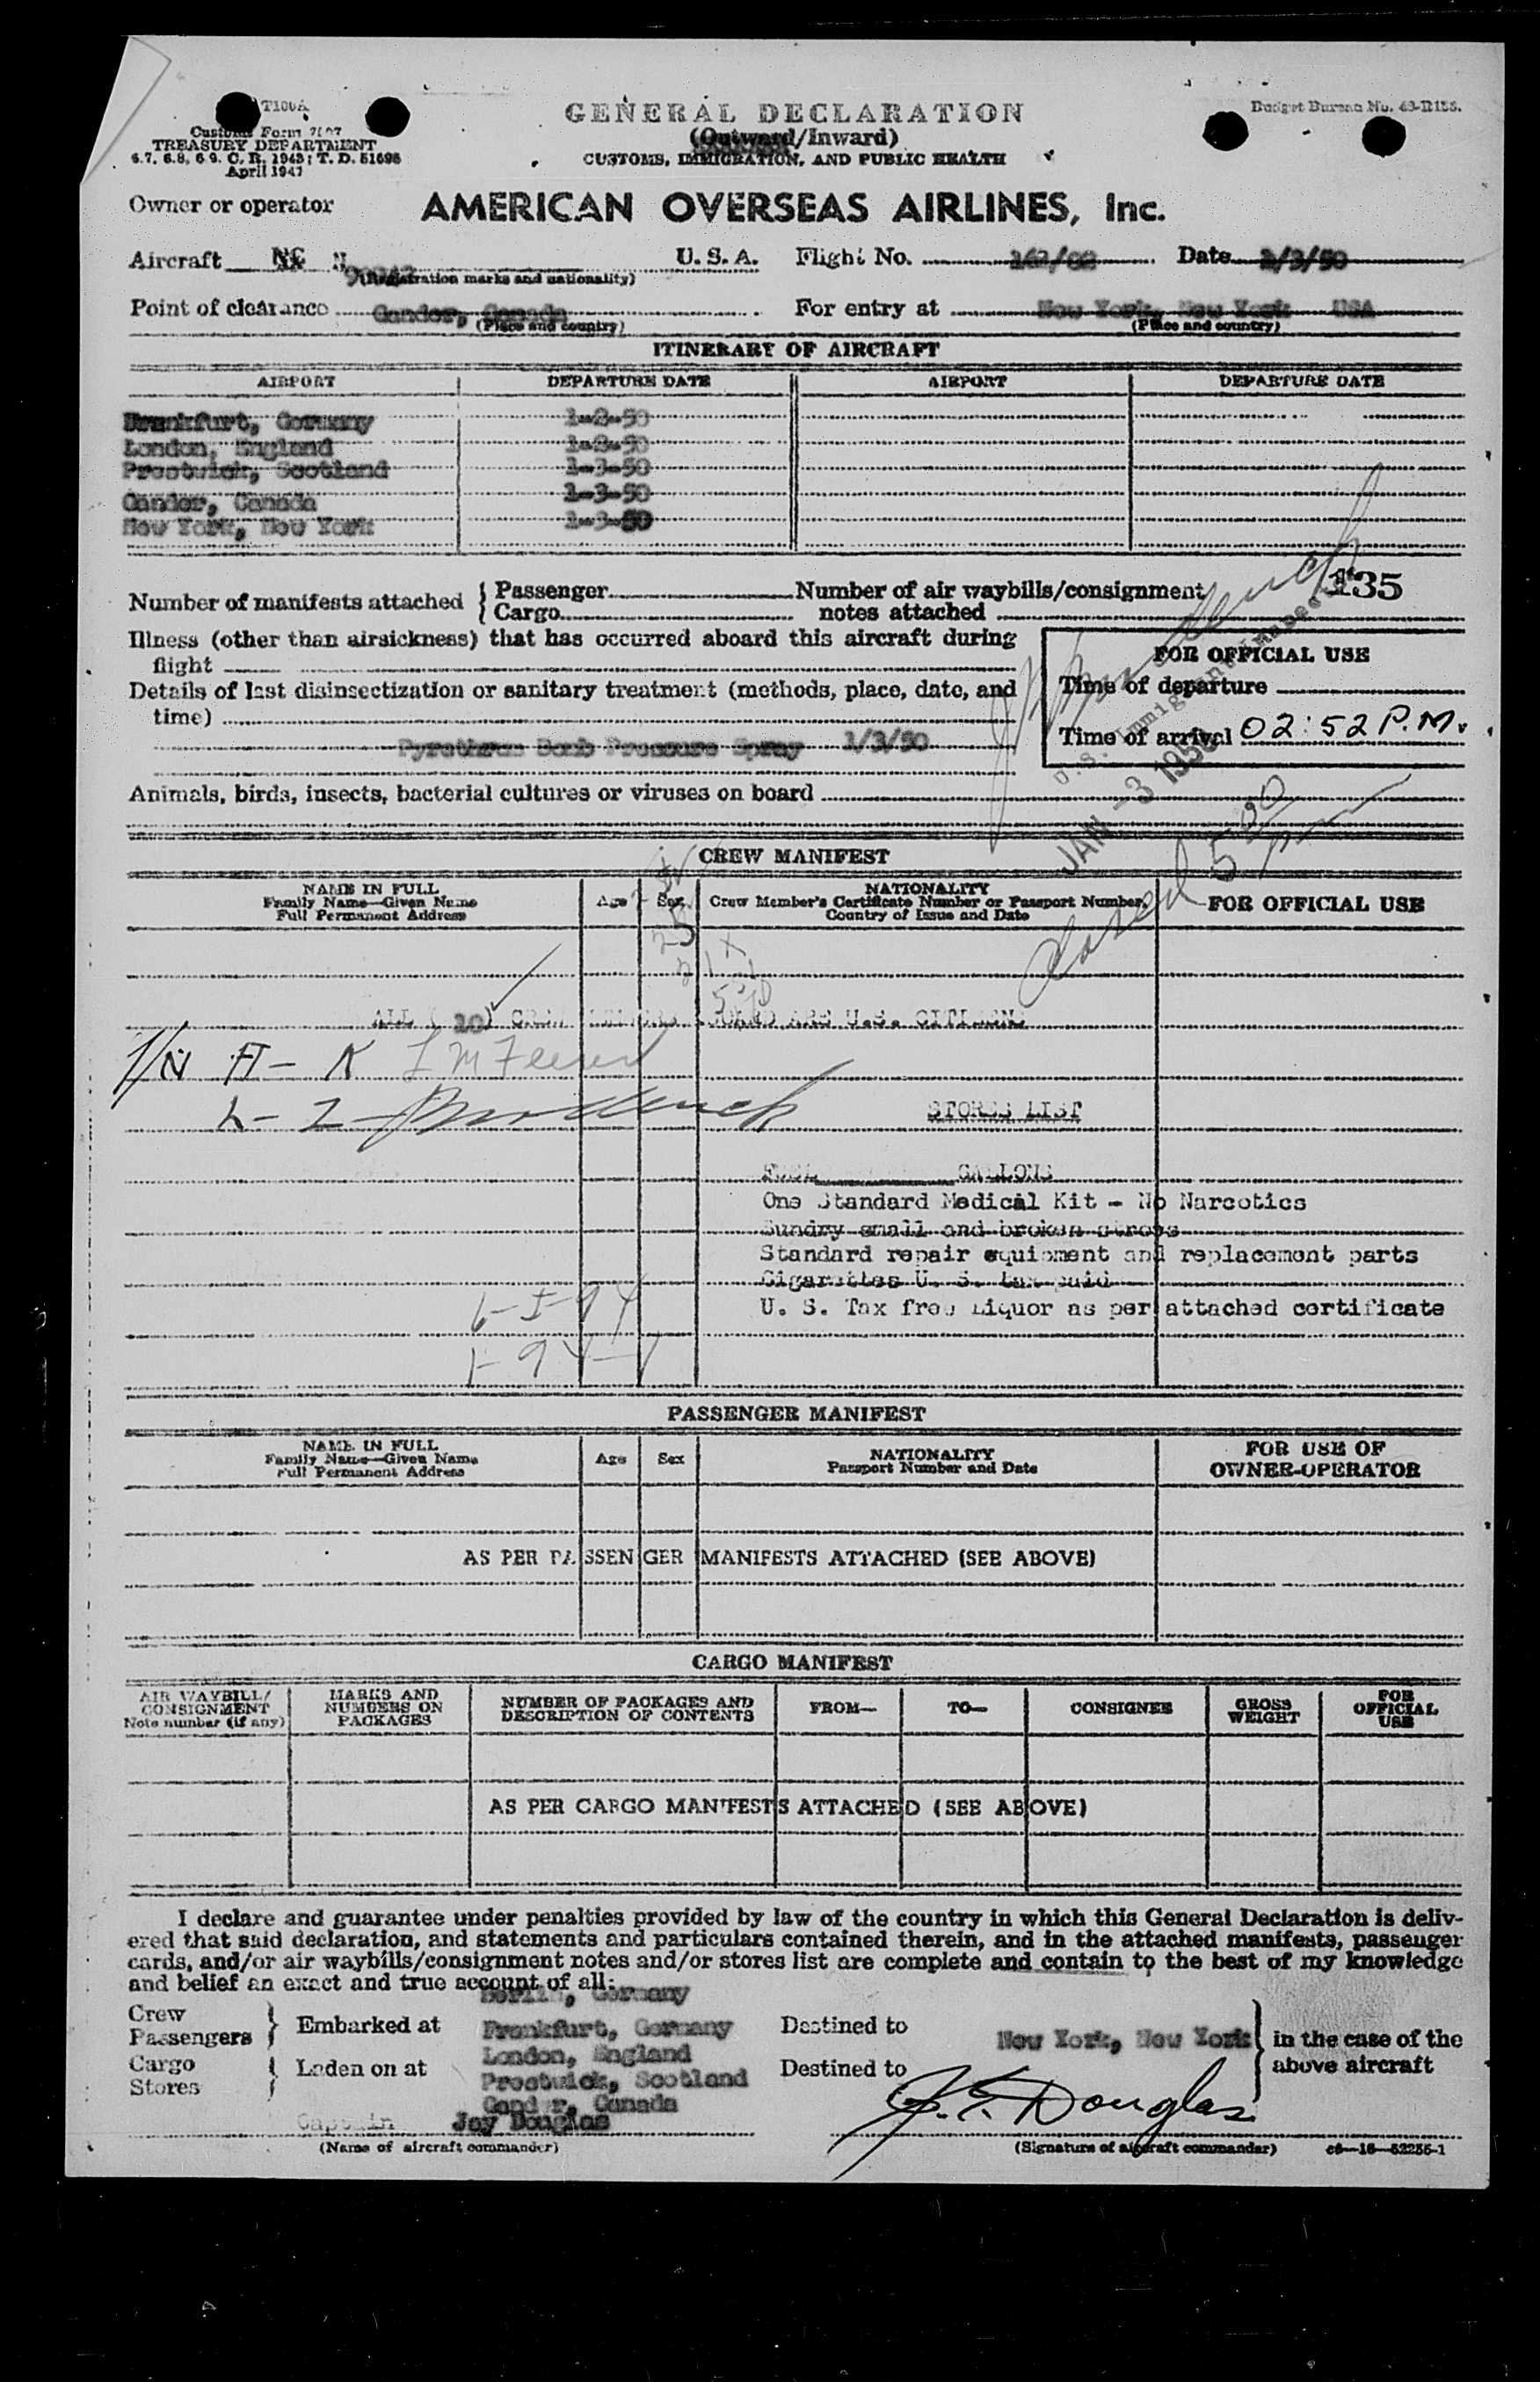 T100A
Customs Form 7507
TREASURY DEPARTMENT
6.7, 6.8, 6.9, C. R. 1943; T. D. 51696
April 1947
GENERAL DECLARATION
(Outward/Inward)
CUSTOMS, IMMIGRATION, AND PUBLIC HEALTH
Budget Bureau No. 43-R155.
Owner or operator AMERICAN OVERSEAS AIRLINES, Inc.
Aircraft NC N U. S. A. Flight No. Date 1/3/50
(Registration marks and nationality)
Point of clearance Gander, Canada For entry at New York, New York USA
(Place and country) (Place and country)
ITINERARY OF AIRCRAFT
AIRPORT DEPARTURE DATE AIRPORT DEPARTURE DATE
Frankfurt, Germany 1-2-50
London, England 1-2-50
Prestwick, Scotland 1-3-50
Gander, Canada 1-3-50
New York, New York 1-3-50
135
Number of manifests attached { Passenger Number of air waybills/consignment
{ Cargo notes attached
Illness (other than airsickness) that has occurred aboard this aircraft during
flight
Details of last disinsectization or sanitary treatment (methods, place, date, and
time)
Pyrethrum Bomb Pressure Spray 1/3/50
FOR OFFICIAL USE
Time of departure
Time of arrival 02:52 P.M.
U.S. Immigrant Inspector
JAN -3 1950
Animals, birds, insects, bacterial cultures or viruses on board
CREW MANIFEST
NAME IN FULL
Family Name—Given Name
Full Permanent Address
Age Sex
NATIONALITY
Crew Member's Certificate Number or Passport Number,
Country of Issue and Date
FOR OFFICIAL USE
ALL (10) CREW MEMBERS ABOARD ARE U.S. CITIZENS
STORES LIST
FUEL GALLONS
One Standard Medical Kit - No Narcotics
Sundry small and broken stores
Standard repair equipment and replacement parts
Cigarettes U. S. tax paid
U. S. Tax free Liquor as per attached certificate
PASSENGER MANIFEST
NAME IN FULL
Family Name—Given Name
Full Permanent Address
Age Sex
NATIONALITY
Passport Number and Date
FOR USE OF
OWNER-OPERATOR
AS PER PASSENGER MANIFESTS ATTACHED (SEE ABOVE)
CARGO MANIFEST
AIR WAYBILL/
CONSIGNMENT
Note number (if any)
MARKS AND
NUMBERS ON
PACKAGES
NUMBER OF PACKAGES AND
DESCRIPTION OF CONTENTS
FROM— TO— CONSIGNEE
GROSS
WEIGHT
FOR
OFFICIAL
USE
AS PER CARGO MANIFESTS ATTACHED (SEE ABOVE)
I declare and guarantee under penalties provided by law of the country in which this General Declaration is deliv-
ered that said declaration, and statements and particulars contained therein, and in the attached manifests, passenger
cards, and/or air waybills/consignment notes and/or stores list are complete and contain to the best of my knowledge
and belief an exact and true account of all:
Berlin, Germany
Crew
Passengers } Embarked at Frankfurt, Germany Destined to New York, New York } in the case of the
London, England
Cargo
Stores { Laden on at Prestwick, Scotland Destined to above aircraft
Gander, Canada
Captain Jay Douglas J. T. Douglas
(Name of aircraft commander) (Signature of aircraft commander) c6—16—52255-1